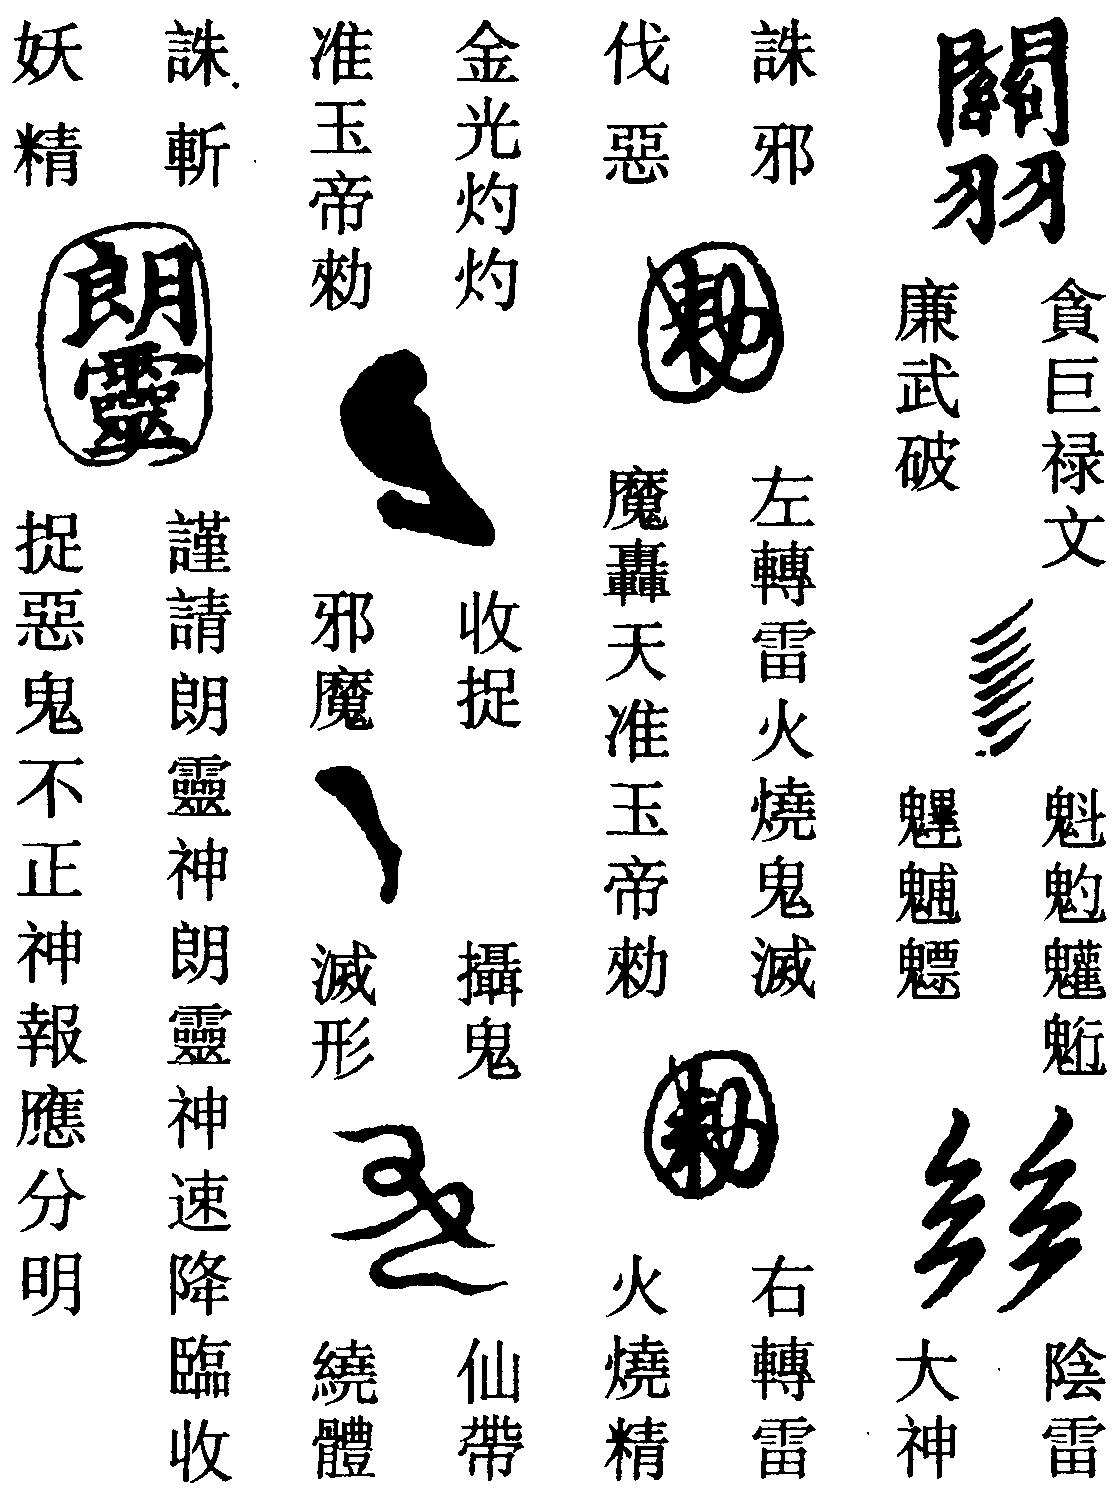 關羽
貪巨禄文
廉武破
魁𩲃𩵄䰢
魓𩳐魒
陰雷
大神
誅邪
伐惡
勅
左轉雷火燒鬼滅
魔轟天准玉帝勅
勅
右轉雷
火燒精
金光灼灼
准玉帝勅
收捉
邪魔
攝鬼
滅形
仙帶
繞體
誅斬
妖精
朗靈
謹請朗靈神朗靈神速降臨收
捉惡鬼不正神報應分明